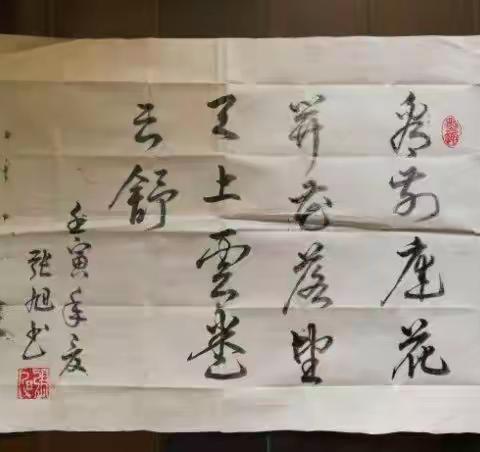 看前庭花
开花落望
天上雲卷
云舒
壬寅年夏
張旭书